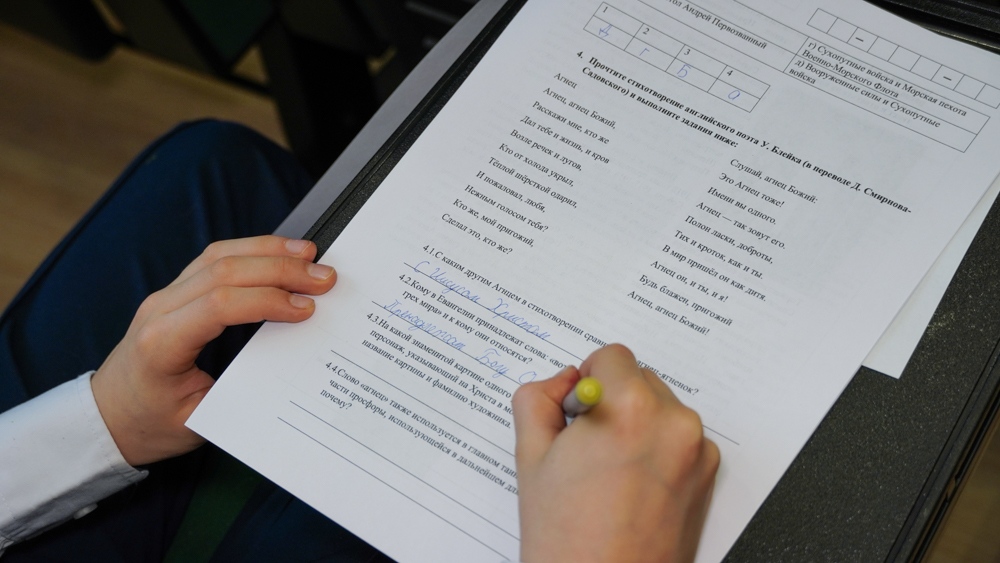 тол Андрей Первозванный
г) Сухопутные войска и Морская пехота
Военно-Морского Флота
д) Вооруженные силы и Сухопутные
войска
1 2 3 4
А Г Б
4. Прочтите стихотворение английского поэта У. Блейка (в переводе Д. Смирнова-
Садовского) и выполните задания ниже:
Агнец
Агнец, агнец Божий,
Расскажи мне, кто же
Дал тебе и жизнь, и кров
Возле речек и лугов,
Кто от холода укрыл,
Тёплой шёрсткой одарил,
И пожаловал, любя,
Нежным голосом тебя?
Кто же, мой пригожий,
Сделал это, кто же?
Слушай, агнец Божий:
Это Агнец тоже!
Имени вы одного.
Агнец — так зовут его.
Полон ласки, доброты,
Тих и кроток, как и ты.
В мир пришёл он как дитя.
Агнец он, и ты, и я!
Будь блажен, пригожий
Агнец, агнец Божий!
4.1. С каким другим Агнцем в стихотворении
С Иисусом Христом
4.2. Кому в Евангелии принадлежат слова:
грех мира» и к кому они относятся?
Принадлежат
4.3. На какой знаменитой картине одного
персонаж, указывающий на Христа в
название картины и фамилию художника.
4.4. Слово «агнец» также используется в главном
части просфоры, использующейся в дальнейшем
почему?